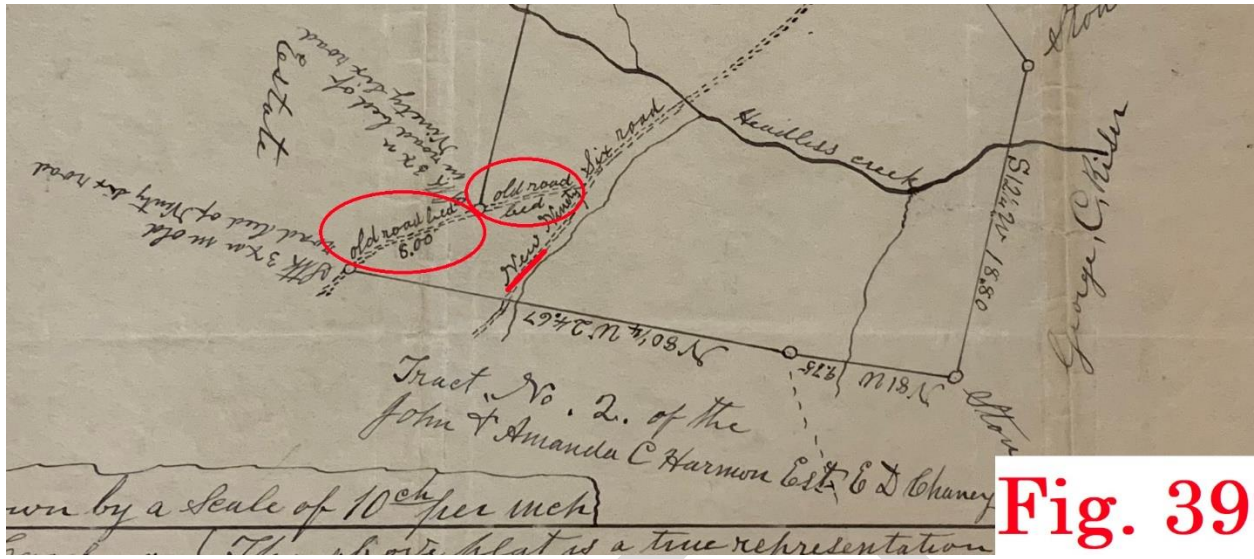 Ston
Estate
Stk 3xn
in road bed of
Ninety six road
Stk 3xn in old
road bed of Ninty six road
old road bed
8.00
old road
bed
New Ninety Six road
Headless creek
S 12 1/4 W 18.80
George, C, Kibler
N 80 1/4 W 24.67
9.75
N 81 W
Ston
Tract No. 2. of the
John & Amanda C Harmon Est. E D Chaney
wn by a scale of 10 ch per inch
The above plat is a true representation
Fig. 39